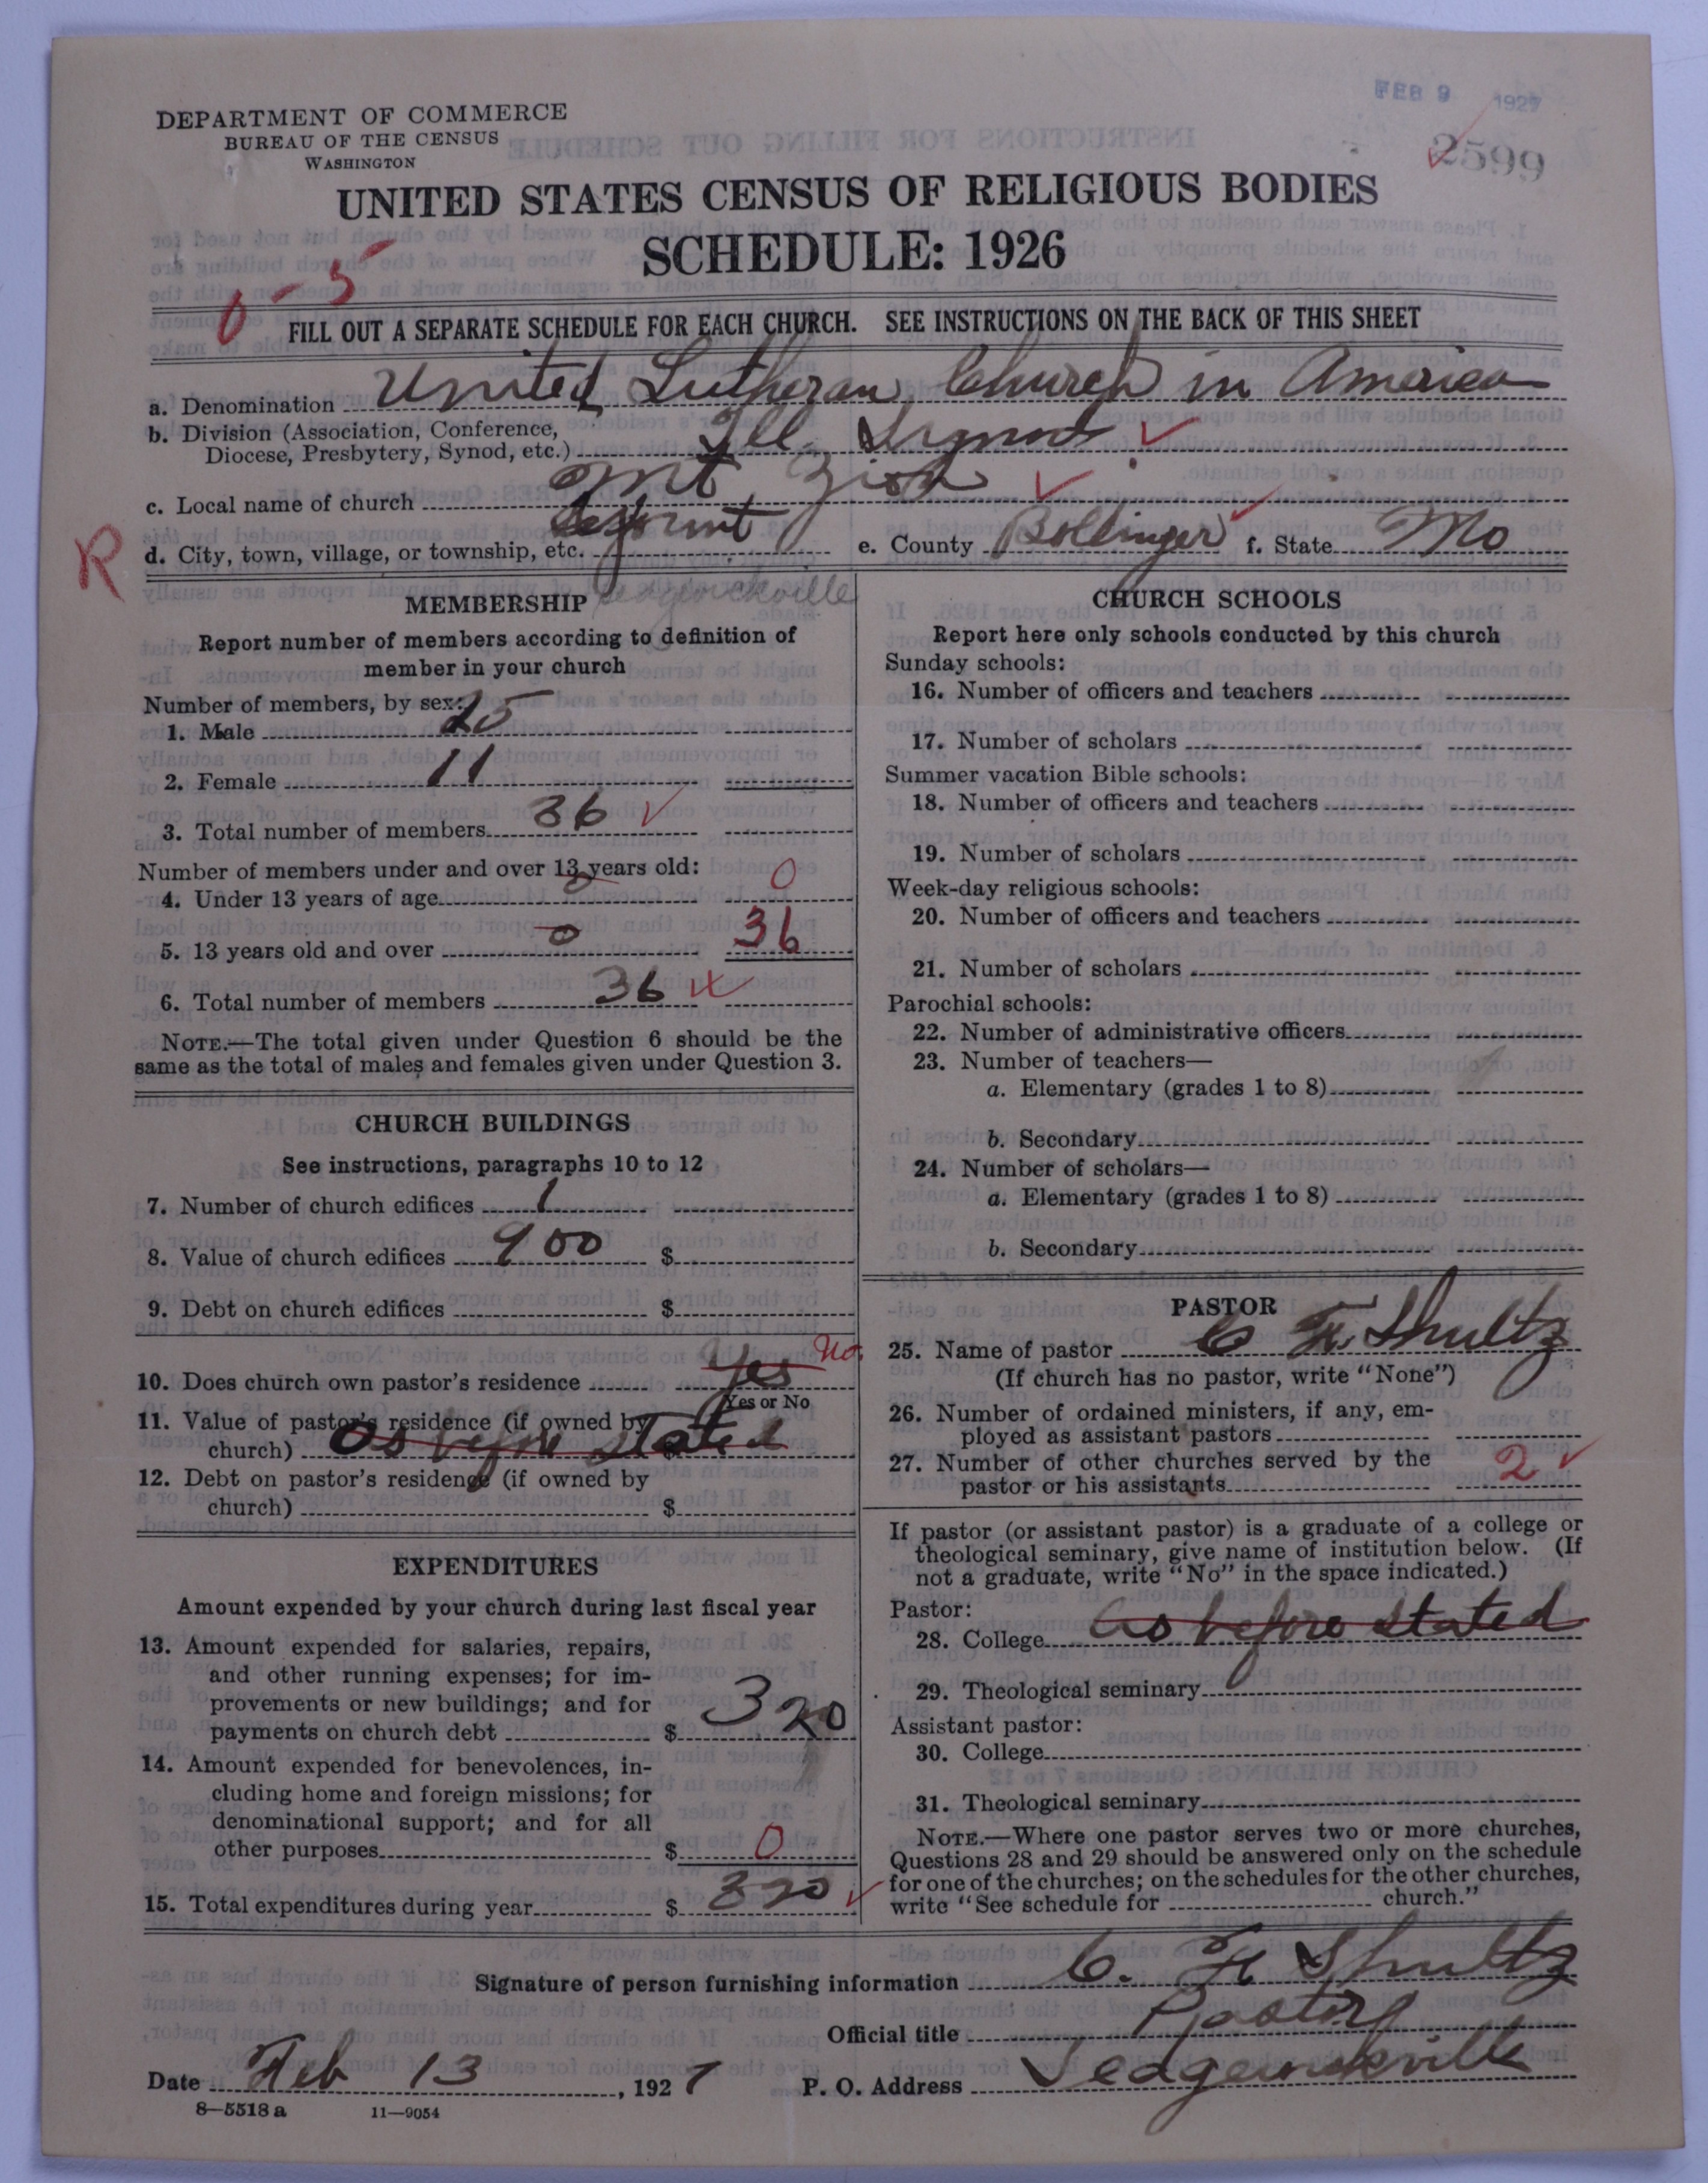 FEB 9 1927
2599
DEPARTMENT OF COMMERCE
BUREAU OF THE CENSUS
WASHINGTON
UNITED STATES CENSUS OF RELIGIOUS BODIES
SCHEDULE: 1926
0-5
FILL OUT A SEPARATE SCHEDULE FOR EACH CHURCH. SEE INSTRUCTIONS ON THE BACK OF THIS SHEET
a. Denomination United Lutheran Church in America
b. Division (Association, Conference,
Diocese, Presbytery, Synod, etc.) Ill. Synod
c. Local name of church Mt Zion
R
d. City, town, village, or township, etc. e. County Bollinger f. State Mo
Sedgewickville
MEMBERSHIP
Report number of members according to definition of
member in your church
Number of members, by sex:
1. Male 25
2. Female 11
3. Total number of members 36
Number of members under and over 13 years old:
4. Under 13 years of age 0 0
5. 13 years old and over 0 36
6. Total number of members 36
NOTE.—The total given under Question 6 should be the
same as the total of males and females given under Question 3.
CHURCH BUILDINGS
See instructions, paragraphs 10 to 12
7. Number of church edifices 1
8. Value of church edifices 900 $
9. Debt on church edifices $
10. Does church own pastor's residence Yes No
Yes or No
11. Value of pastor's residence (if owned by
church) as before stated $
12. Debt on pastor's residence (if owned by
church) $
EXPENDITURES
Amount expended by your church during last fiscal year
13. Amount expended for salaries, repairs,
and other running expenses; for im-
provements or new buildings; and for
payments on church debt $ 320
14. Amount expended for benevolences, in-
cluding home and foreign missions; for
denominational support; and for all
other purposes $ 0
15. Total expenditures during year $ 320
CHURCH SCHOOLS
Report here only schools conducted by this church
Sunday schools:
16. Number of officers and teachers
17. Number of scholars
Summer vacation Bible schools:
18. Number of officers and teachers
19. Number of scholars
Week-day religious schools:
20. Number of officers and teachers
21. Number of scholars
Parochial schools:
22. Number of administrative officers
23. Number of teachers—
a. Elementary (grades 1 to 8)
b. Secondary
24. Number of scholars—
a. Elementary (grades 1 to 8)
b. Secondary
PASTOR
25. Name of pastor C F. Shultz
(If church has no pastor, write "None")
26. Number of ordained ministers, if any, em-
ployed as assistant pastors
27. Number of other churches served by the
pastor or his assistants 2
If pastor (or assistant pastor) is a graduate of a college or
theological seminary, give name of institution below. (If
not a graduate, write "No" in the space indicated.)
Pastor:
28. College as before stated
29. Theological seminary
Assistant pastor:
30. College
31. Theological seminary
NOTE.—Where one pastor serves two or more churches,
Questions 28 and 29 should be answered only on the schedule
for one of the churches; on the schedules for the other churches,
write "See schedule for church."
Signature of person furnishing information C. F Shultz
Official title Pastor
Date Feb 13, 1927 P. O. Address Sedgewickville
8—5518a 11—9054